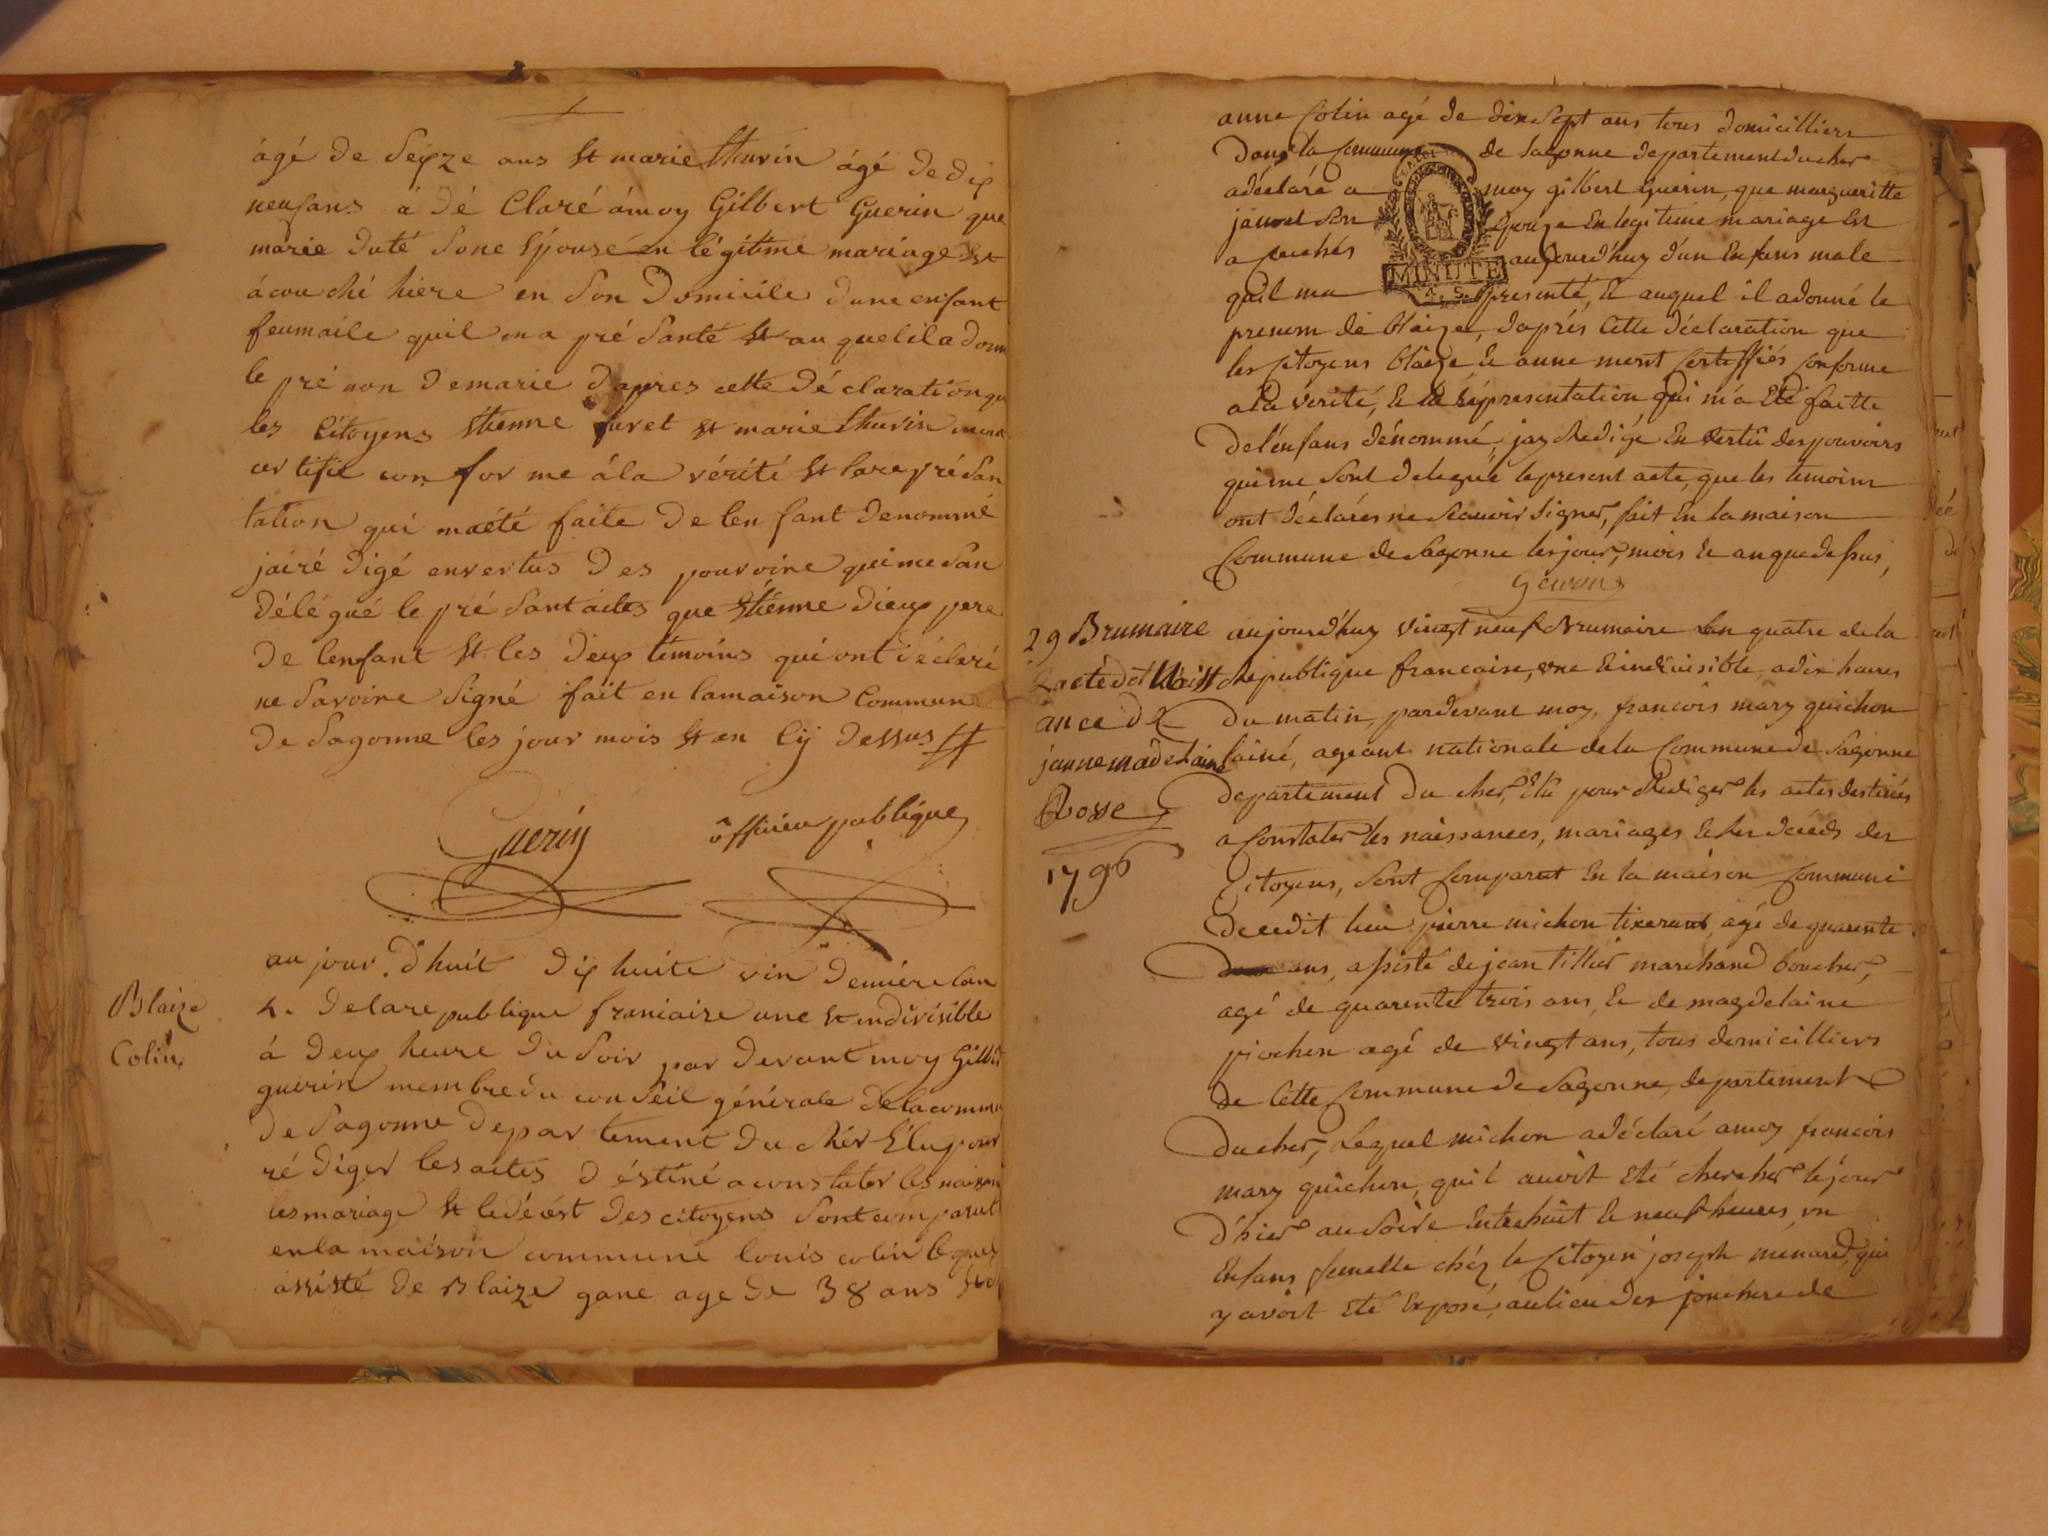 agé de seize ans et marie thurin agé de dix
neufans a dé Claré à moy Gilbert Guerin que
marie duté sone épouse en légitime mariage est
àcouché hiere en son Domicile dune enfant
feumaile quil ma pré santé et au quel il a donn
le pré non de marie dapres cette déclaration qu
les Citoyens étienne furet et marie thurin
certifie con for me à la vérité et la repré san
tation qui maété faite de len fant denommé
jairé digé en vertus des pouvoire qui me san
délé gué le pré sant actes que étienne dieux pere
de lenfant et les deux témoins qui ont déclaré
ne savoire signé fait en la maison Commun
de Sagonne les jour mois et an Cij dessus
Guerin officier publique
Blaize
Colin
au jour d'huit dix huite vin demiere lan
4. de la re publique franiaire une et indivisible
à deux heure du soir par devant moy Gilbe
guerin membre du conseil générale de la commu
de Sagonne depar tement du cher élu pour
ré diger les actes déstiné a cons tater les naissan
les mariage et le décést des citoyens sont com parut
en la maison commune louis colin lequel
assisté de Blaize gane age de 38 ans et d
anne Colin agé de dix sept ans tous domicilliers
dans la Commune de Sagonne departement du cher
a déclaré a moy gilbert Guerin, que margueritte
jauvet son Epouze En legitime mariage Est
a couchés aujourd'huy d'un Enfans male
quil ma presenté, Et auquel il a donné le
MINUTE
prenom de blaize, d'aprés Cette déclaration que
les Citoyens blaize Et anne mont Certiffiés Conforme
a la verité, Et la répresentation qui m'a Eté faitte
de l'enfans dénommé, jay Redigé En vertû des pouvoirs
qui me sont delegué le present acte, que les temoins
ont déclarés ne scavoir signer, fait En la maison
Commune de Sagonne les jour, mois Et an que dessus,
29 Brumaire
acte de Naiss
ance de
janne madelaine
Rosse
1796
aujourd'huy vingt neuf Brumaire Lan quatre de la
Republique francaise, une Et indivisible, a dix heures
du matin, pardevant moy, francois mary guichon
lainé, ageant nationale de la Commune de Sagonne
departement du cher, Elû pour Rediger les actes destinés
a Constater les naissances, mariages Et les décéds des
Citoyens, sont Comparut En la maison Commune
de cedit lieu pierre michon tixerant, agé de quarente
ans, assisté de jean tillier marchand boucher,
agé de quarente trois ans, Et de magdelaine
piochon agé de vingt ans, tous domicilliers
de Cette Commune de Sagonne, departement
du cher, Lequel michon a déclaré a moy francois
mary guichon, qu'il avoit Eté chercher le jour
d'hier au soire Entre huit Et neuf heures, un
Enfans femelle chéz le Citoyen joseph menard, qui
y avoit Eté Exposé, au lieu des joucheres de